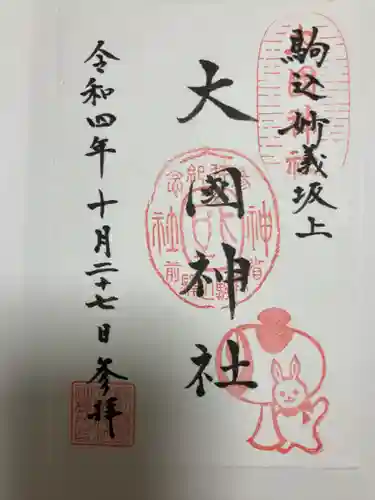 駒込妙義坂上
大國神社
令和四年十月二十七日参拝